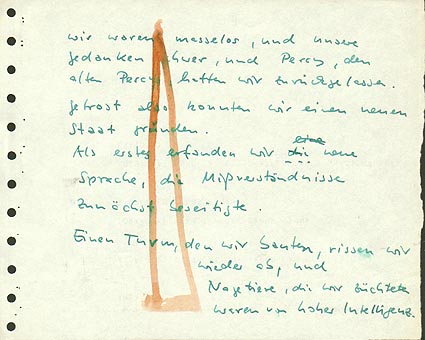 wir waren masselos, und unsere
Gedanken schwer, und Percy, den
alten Percy hatten wir zurückgelassen.
getrost also konnten wir einen neuen
Staat gründen.
eine
Als erstes erfanden wir die neue
Sprache, die Mißverständnisse
zunächst beseitigte.
Einen Turm, den wir bauten, rissen wir
wieder ab, und
Nagetiere, die wir züchteten
waren von hoher Intelligenz.